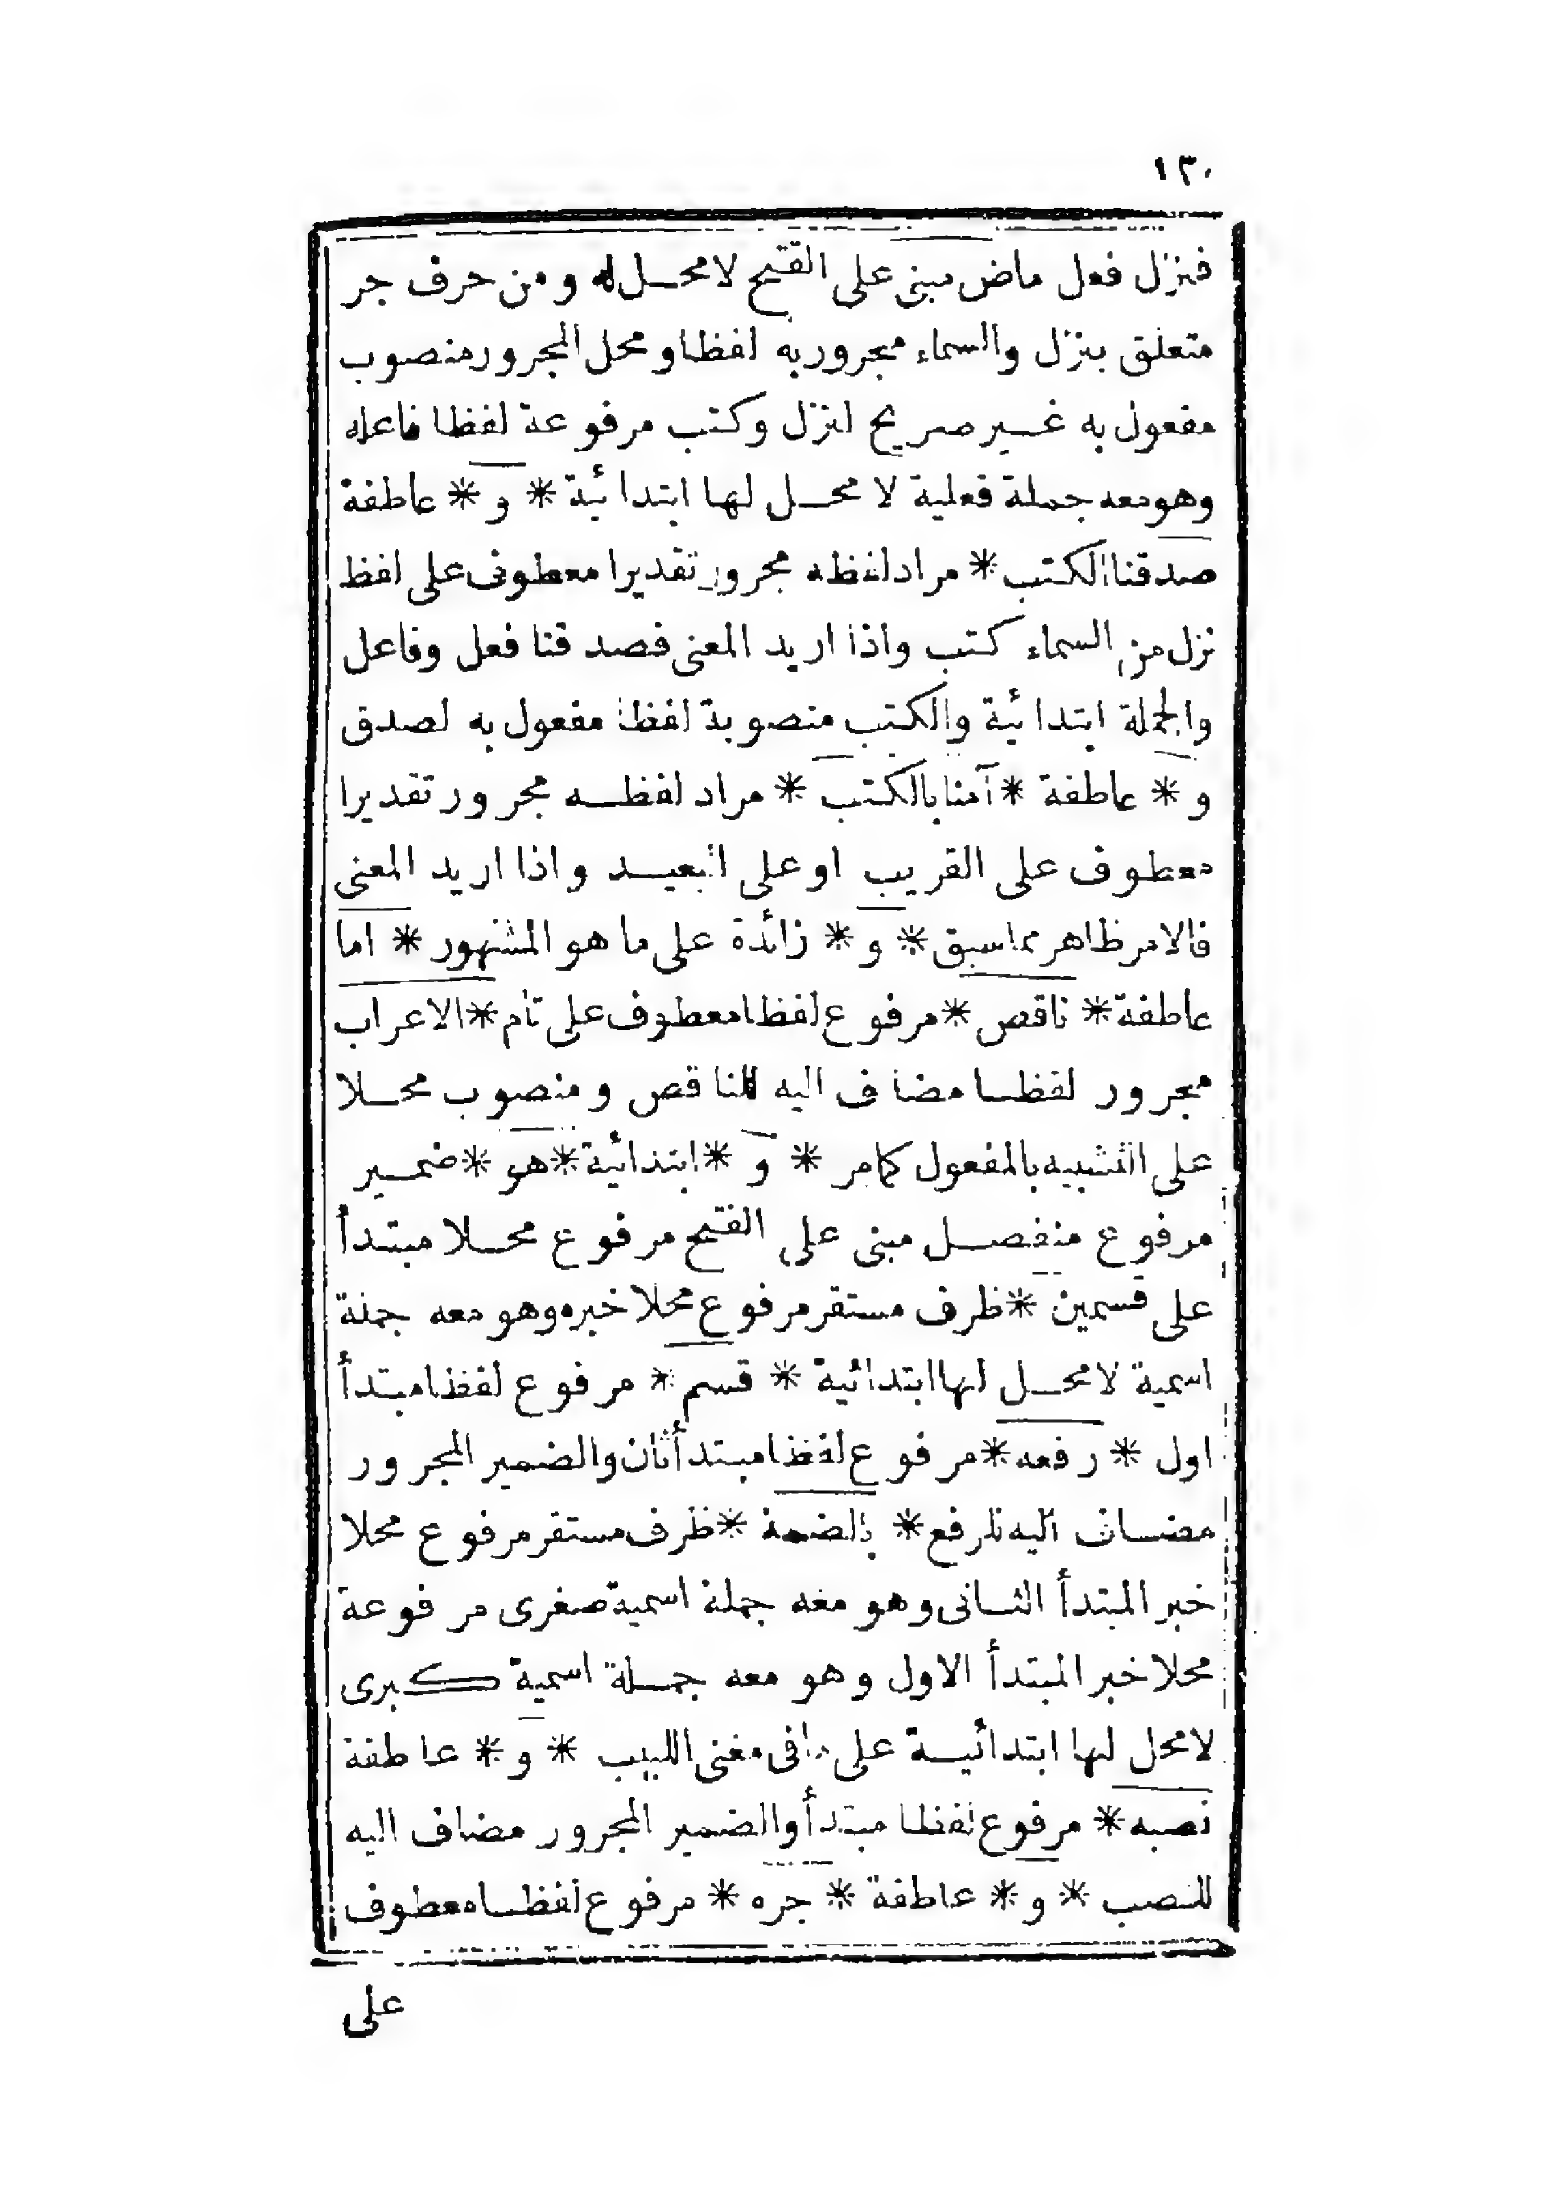 ١٣٠
فنزل فعل ماض مبنى على الفتح لا محل له ومن حرف جر
متعلق بنزل والسماء مجرور به لفظا ومحل المجرور منصوب
مفعول به غير صريح لنزل وكتب مرفوعة لفظا فاعله
وهو معه جملة فعلية لا محل لها ابتدائية * و * عاطفة
صدقنا الكتب * مراد لفظه مجرور تقديرا معطوف على لفظ
نزل من السماء كتب واذا اريد المعنى فصدقنا فعل وفاعل
والجملة ابتدائية والكتب منصوبة لفظا مفعول به لصدق
و * عاطفة * آمنا بالكتب * مراد لفظه مجرور تقديرا
معطوف على القريب او على البعيد واذا اريد المعنى
فالامر ظاهر مما سبق * و * زائدة على ما هو المشهور * اما
عاطفة * ناقص * مرفوع لفظا معطوف على تام * الاعراب
مجرور لفظا مضاف اليه للناقص ومنصوب محلا
على التشبيه بالمفعول كما مر * و * ابتدائية * هو * ضمير
مرفوع منفصل مبنى على الفتح مرفوع محلا مبتدأ
على قسمين * ظرف مستقر مرفوع محلا خبره وهو معه جملة
اسمية لا محل لها ابتدائية * قسم * مرفوع لفظا مبتدأ
اول * رفعه * مرفوع لفظا مبتدأ ثان والضمير المجرور
مضاف اليه للرفع * بالضمة * ظرف مستقر مرفوع محلا
خبر المبتدأ الثانى وهو معه جملة اسمية صغرى مرفوعة
محلا خبر المبتدأ الاول وهو معه جملة اسمية كبرى
لا محل لها ابتدائية على ما فى مغنى اللبيب * و * عاطفة
نصبه * مرفوع لفظا مبتدأ والضمير المجرور مضاف اليه
للنصب * و * عاطفة * جره * مرفوع لفظا معطوف
على